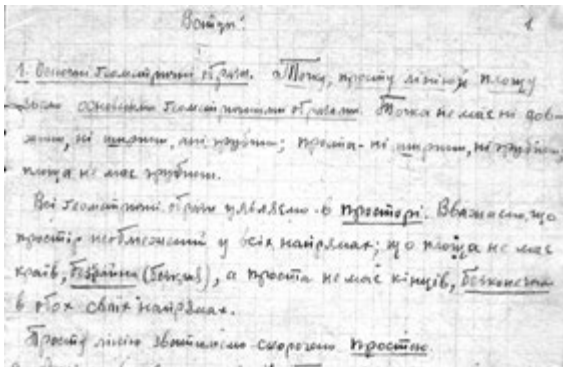 Вступ. 1.
1. Основні геометричні образи. Точку, просту лінію й площу
звемо основними геометричними образами. Точка не має ні дов-
жини, ні ширини, ані грубини; проста - ні ширини, ні грубини;
площа не має грубини.
Всі геометричні образи уявляємо в просторі. Вважаємо, що
простір необмежений у всіх напрямах; що площа не має
країв, безкрая (безкрая), а проста не має кінців, безконечна
в обох своїх напрямах.
Просту лінію зватимемо скорочено простою.